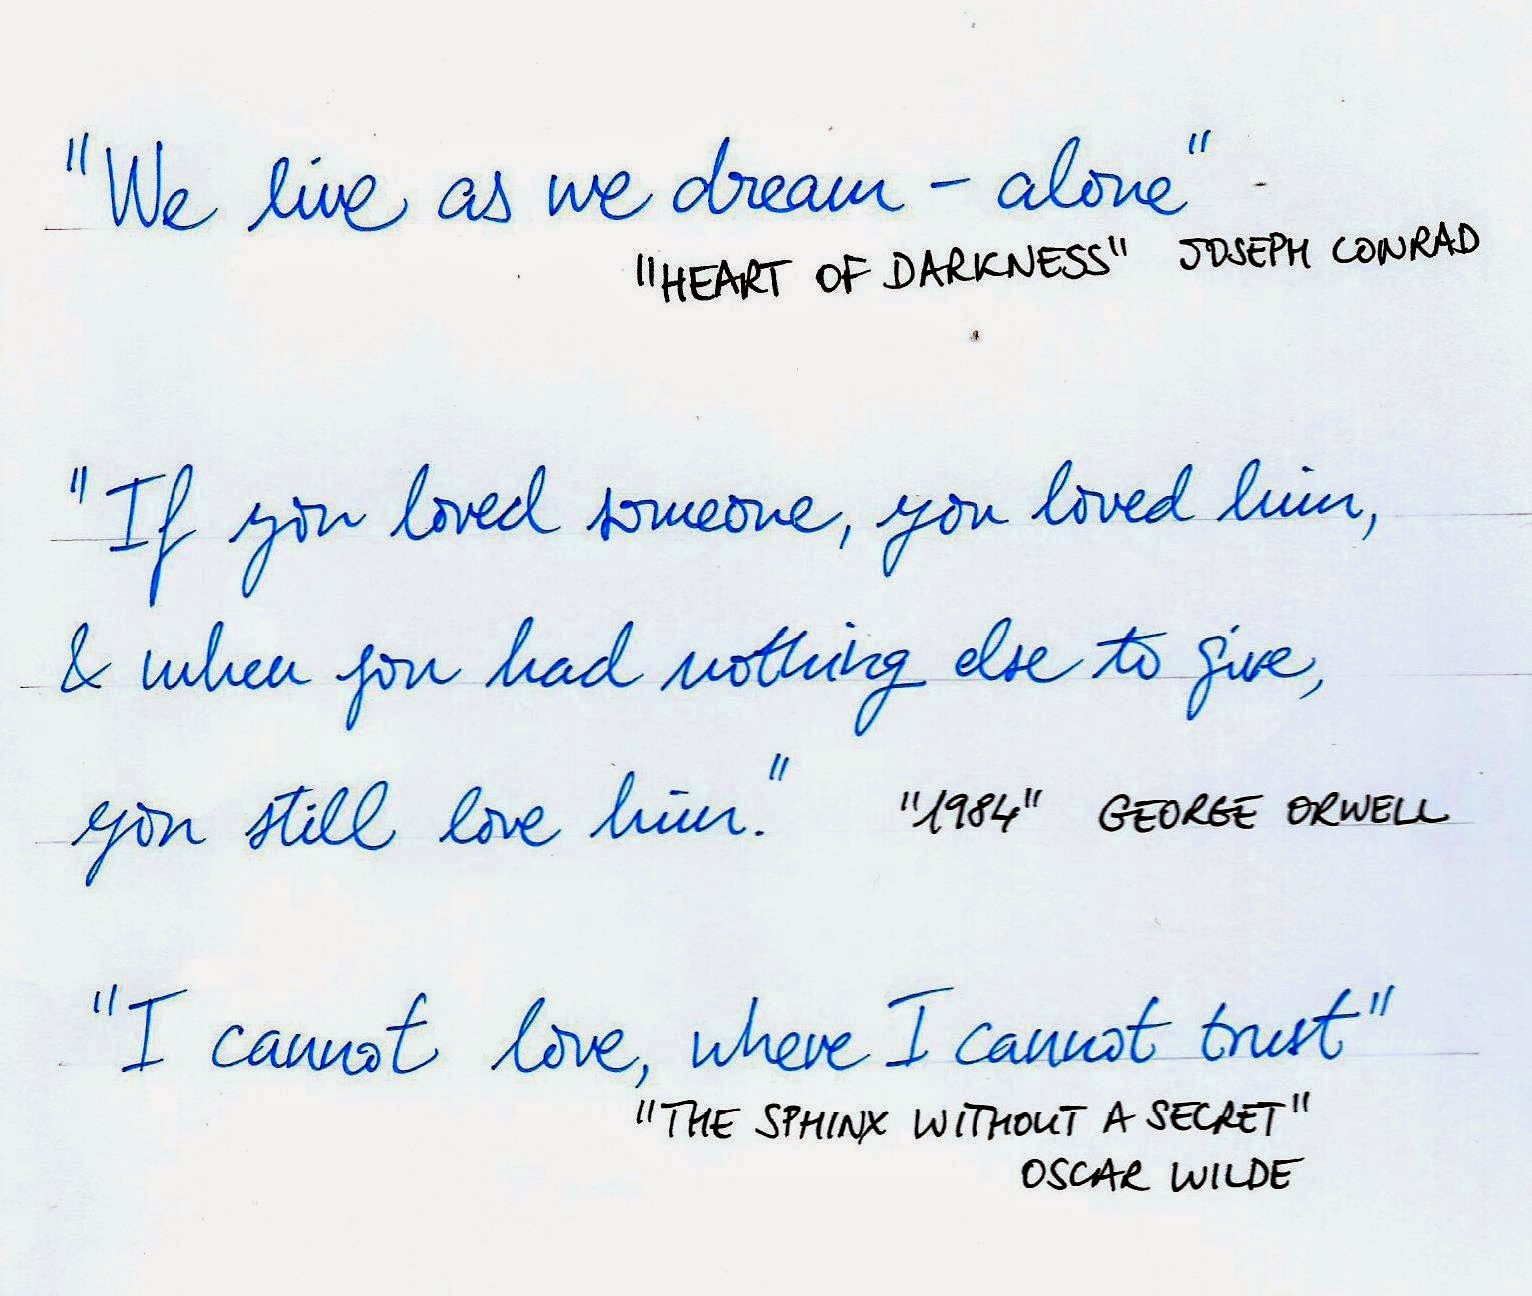 "We live as we dream – alone"
"HEART OF DARKNESS" JOSEPH CONRAD
"If you loved someone, you loved him,
& when you had nothing else to give,
you still love him."
"1984" GEORGE ORWELL
"I cannot love, where I cannot trust"
"THE SPHINX WITHOUT A SECRET"
OSCAR WILDE